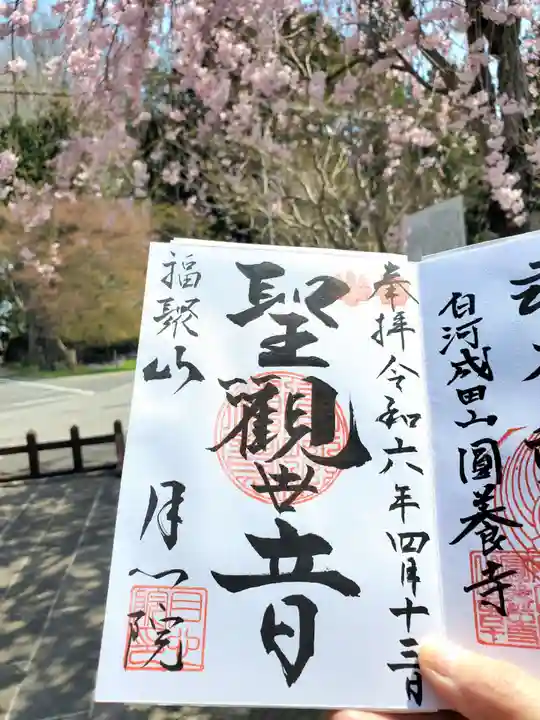 白河成田山圓養寺
奉拝令和六年四月十三日
聖観世音
福聚山
月心院